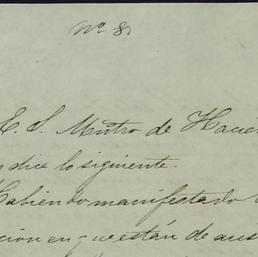 Nº 8
E. S. Mntro de Hacie
dice lo siguiente.
Habiendo manifestado
cion en que están de aus